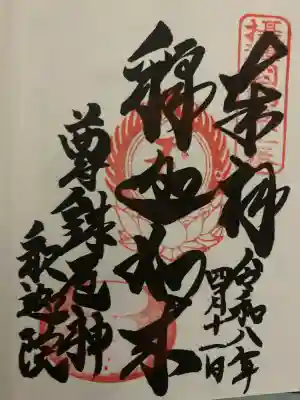 奉拝
令和八年
四月十一日
釋迦如来
尊鉢厄神
釈迦院